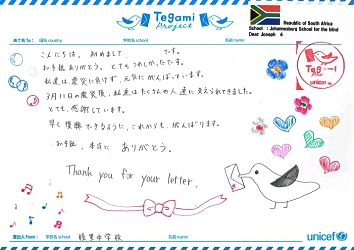 Tegami
Project
あて先/To: 国名 country 学校名 school 名前 name
Republic of South Africa
School : Johannesburg School for the blind
Dear: Joseph 4
こんにちは。はじめまして です。
お手紙ありがとう。とてもうれしかったです。
私達は震災に負けず、元気にがんばっています。
3月11日の震災後、私達はたくさんの人達に支えられてきました。
とても、感謝しています。
早く復興できるように、これからも、がんばります。
お手紙、本当に ありがとう。
Thank you for your letter.
unicef
差出人/From: 学校名 school 名前 name
綾里中学校
unicef